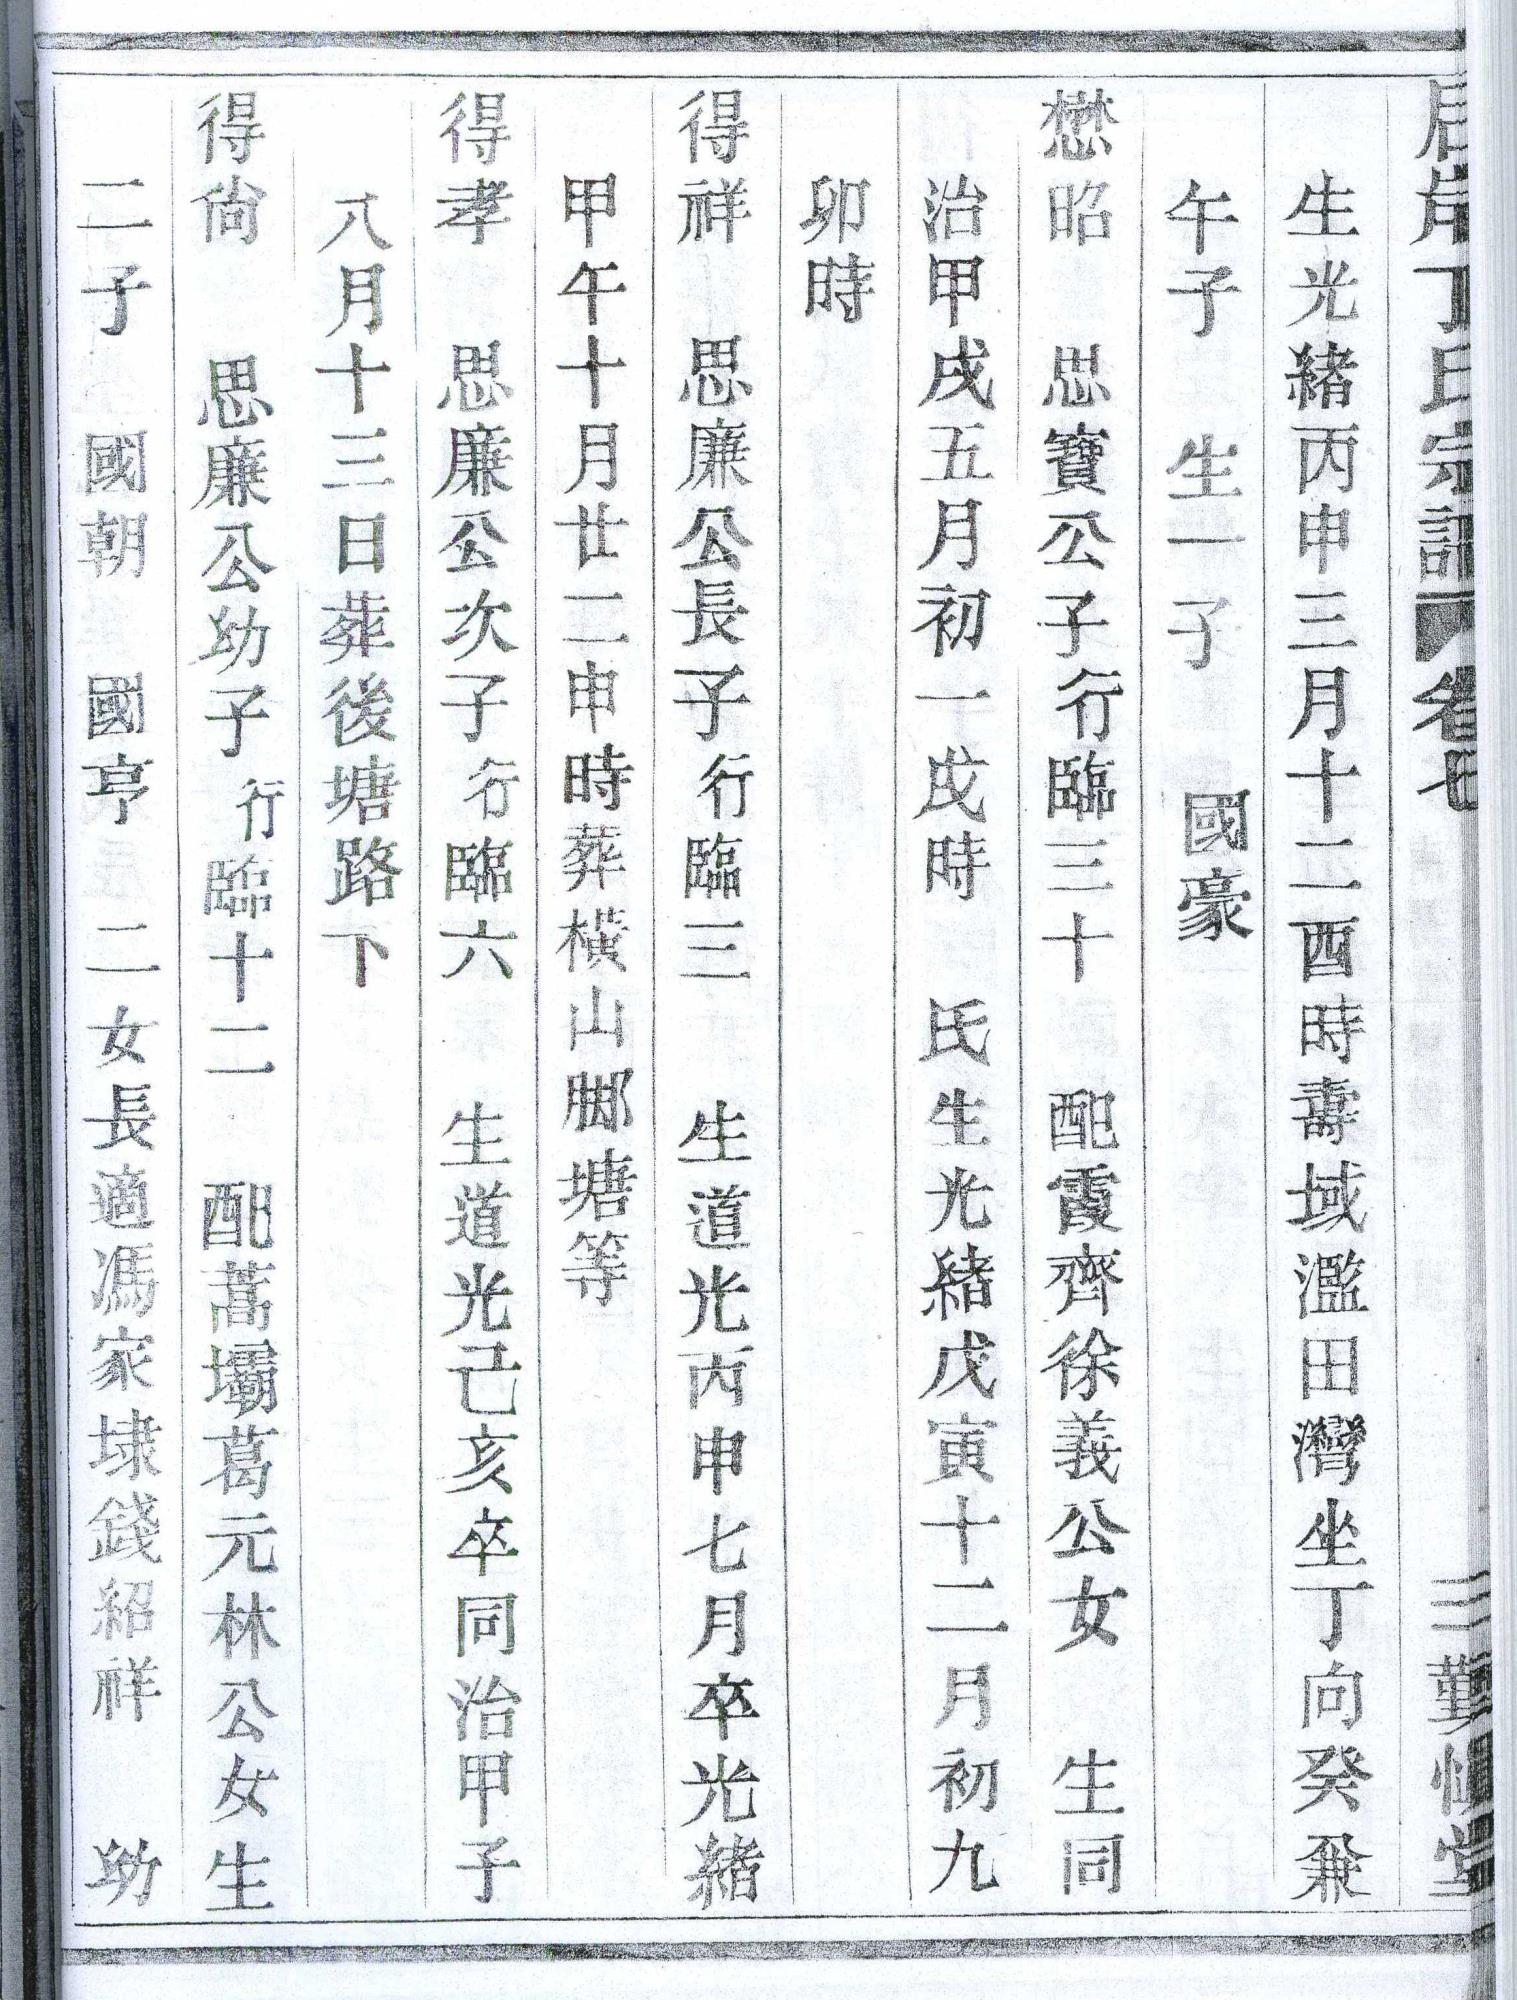 岸丁氏宗譜 卷七 三 勤慎堂
生光緒丙申三月十二酉時壽域濫田灣坐丁向癸兼
午子 生一子 國豪
懋昭 思寶公子行臨三十 配霞齊徐義公女 生同
治甲戌五月初一戌時 氏生光緒戊寅十二月初九
卯時
得祥 思廉公長子行臨三 生道光丙申七月卒光緒
甲午十月廿二申時葬橫山脚塘等
得孝 思廉公次子行臨六 生道光己亥卒同治甲子
八月十三日葬後塘路下
得尙 思廉公幼子行臨十二 配蒿壩葛元林公女生
二子 國朝 國亨 二女長適馮家埭錢紹祥 幼